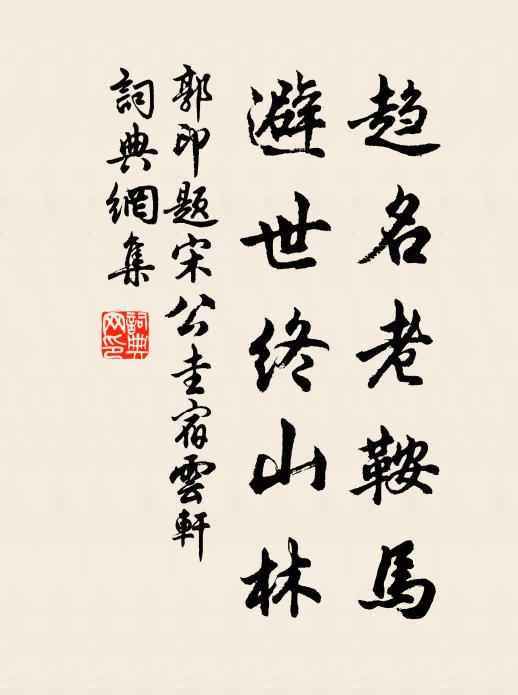 趨名老鞍馬
避世終山林
郭印題宋公圭宿雲軒
詞典網集
詞典網印